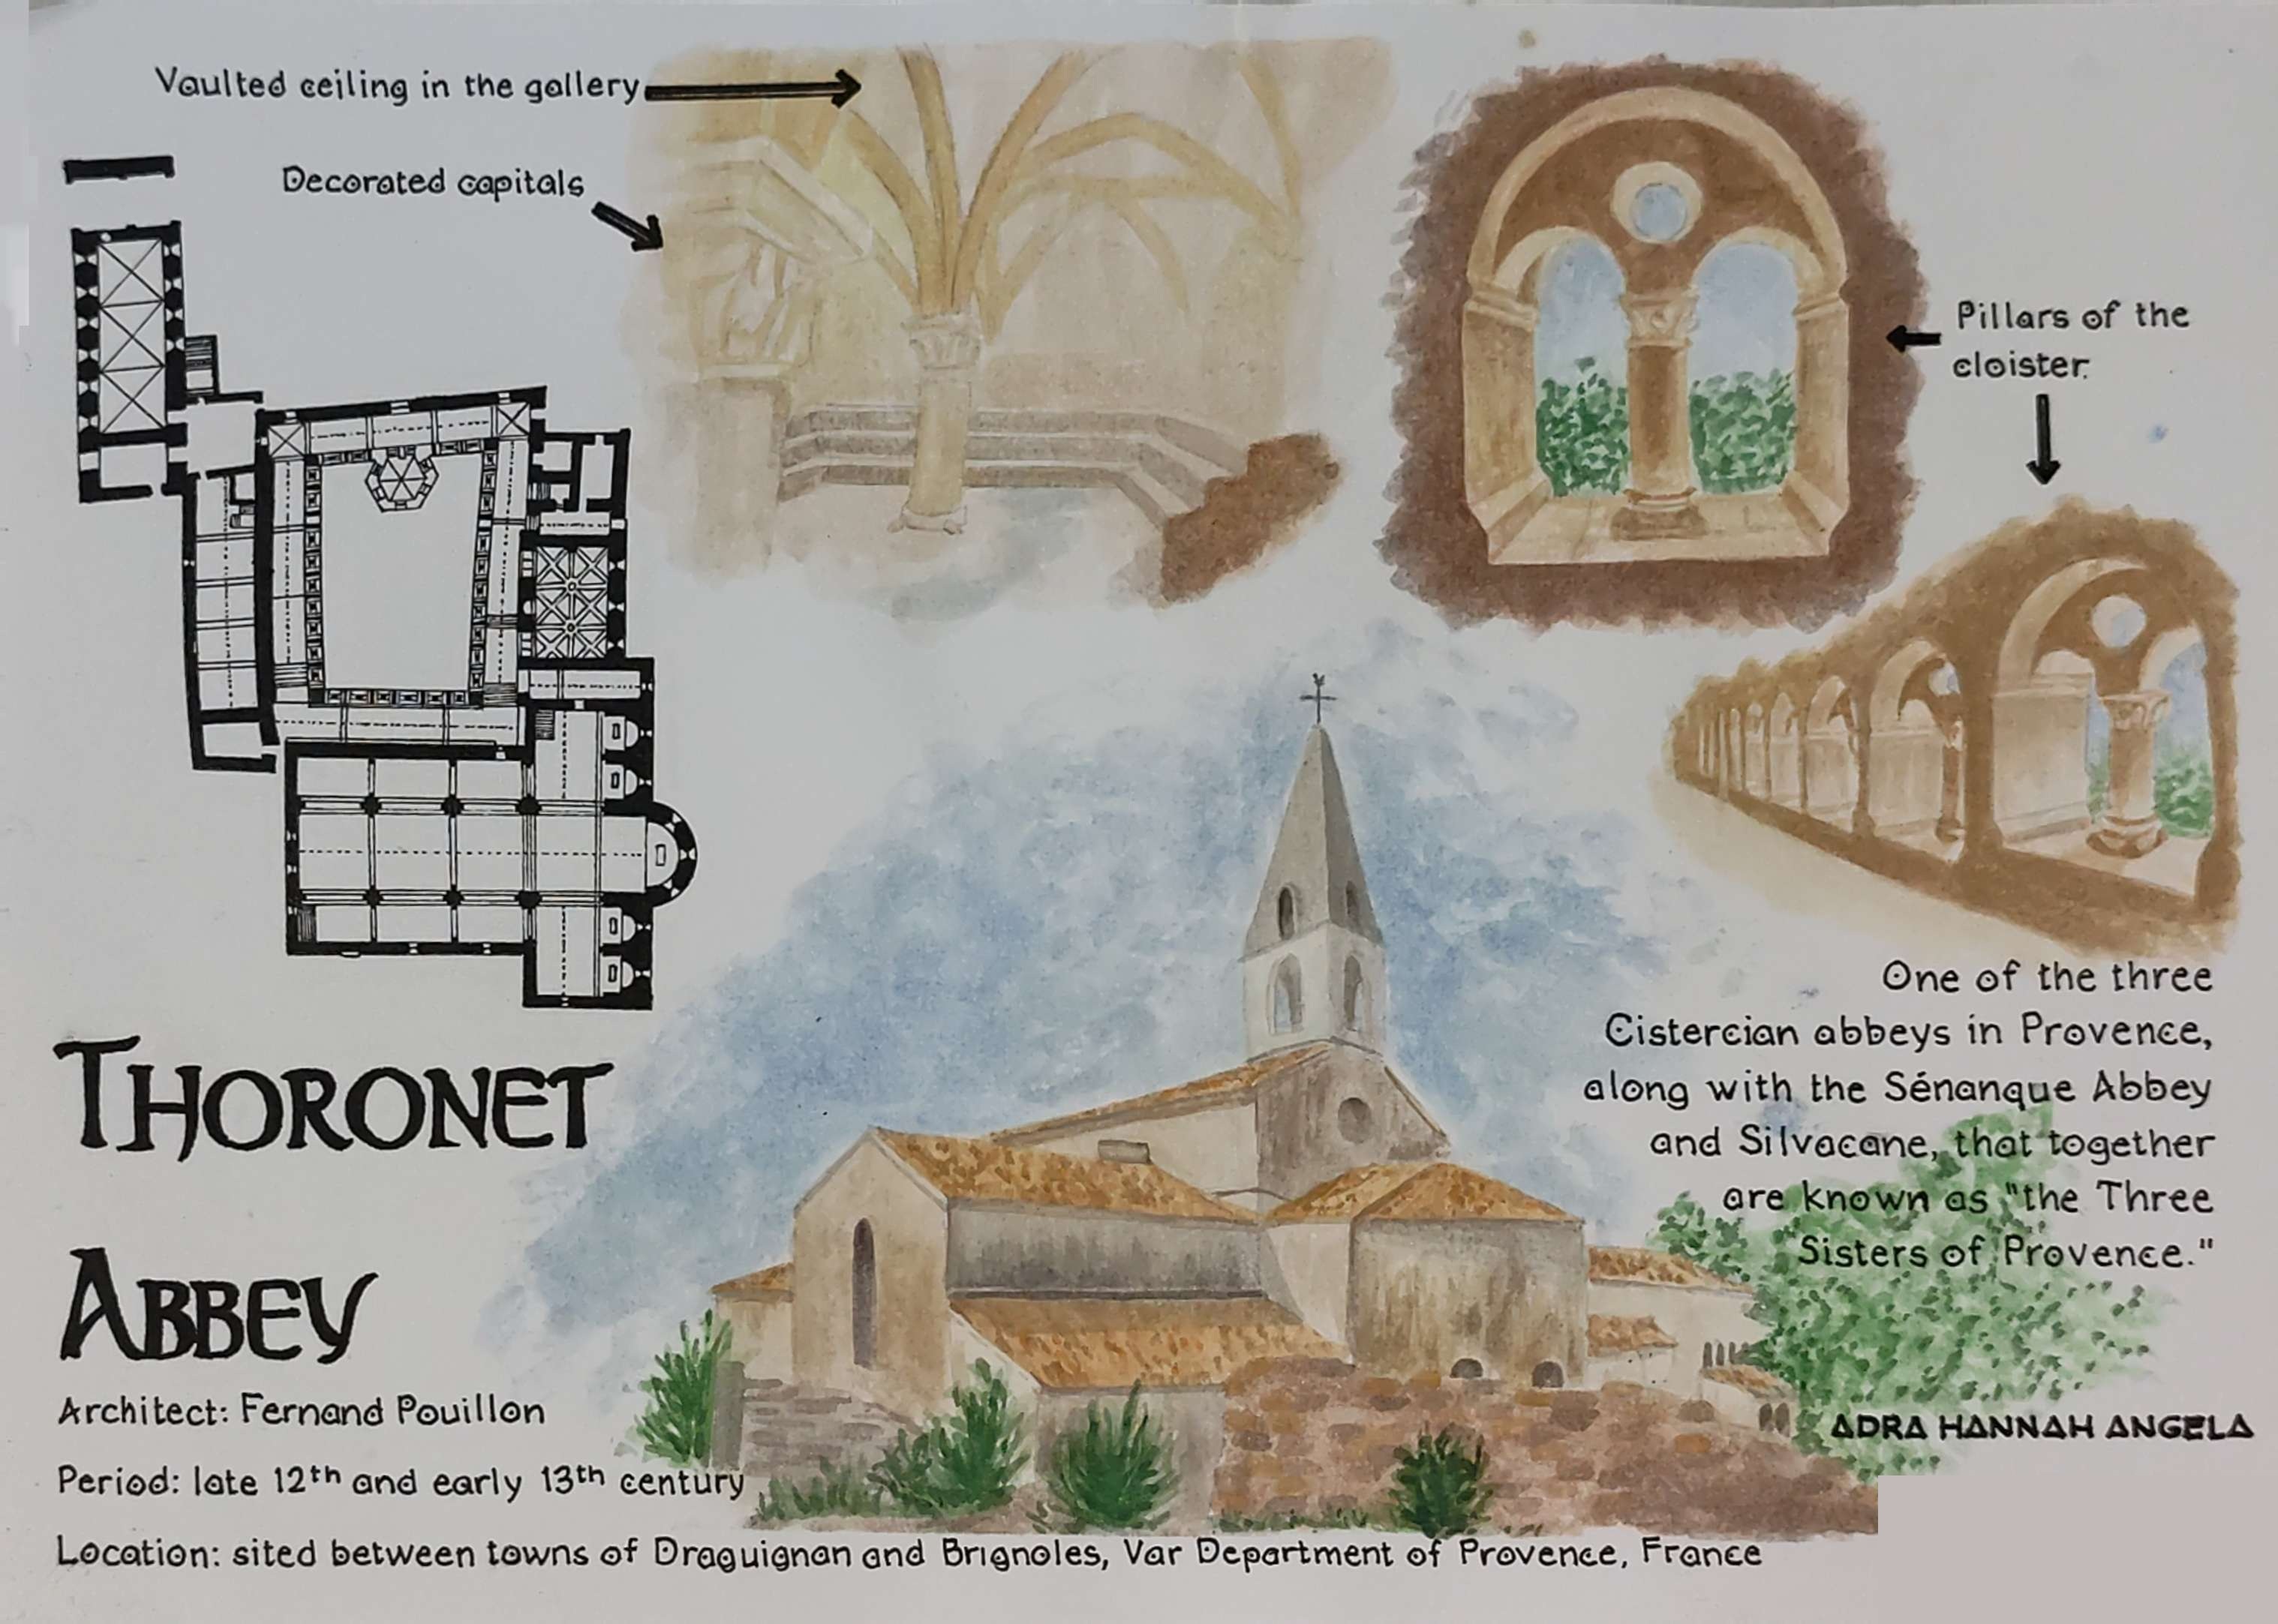 Vaulted ceiling in the gallery
Decorated capitals
Pillars of the
cloister.
One of the three
Cistercian abbeys in Provence,
along with the Sénanque Abbey
and Silvacane, that together
are known as "the Three
Sisters of Provence."
THORONET
ABBEY
Architect: Fernand Pouillon
Period: late 12th and early 13th century
Location: sited between towns of Draguignan and Brignoles, Var Department of Provence, France
ADRA HANNAH ANGELA